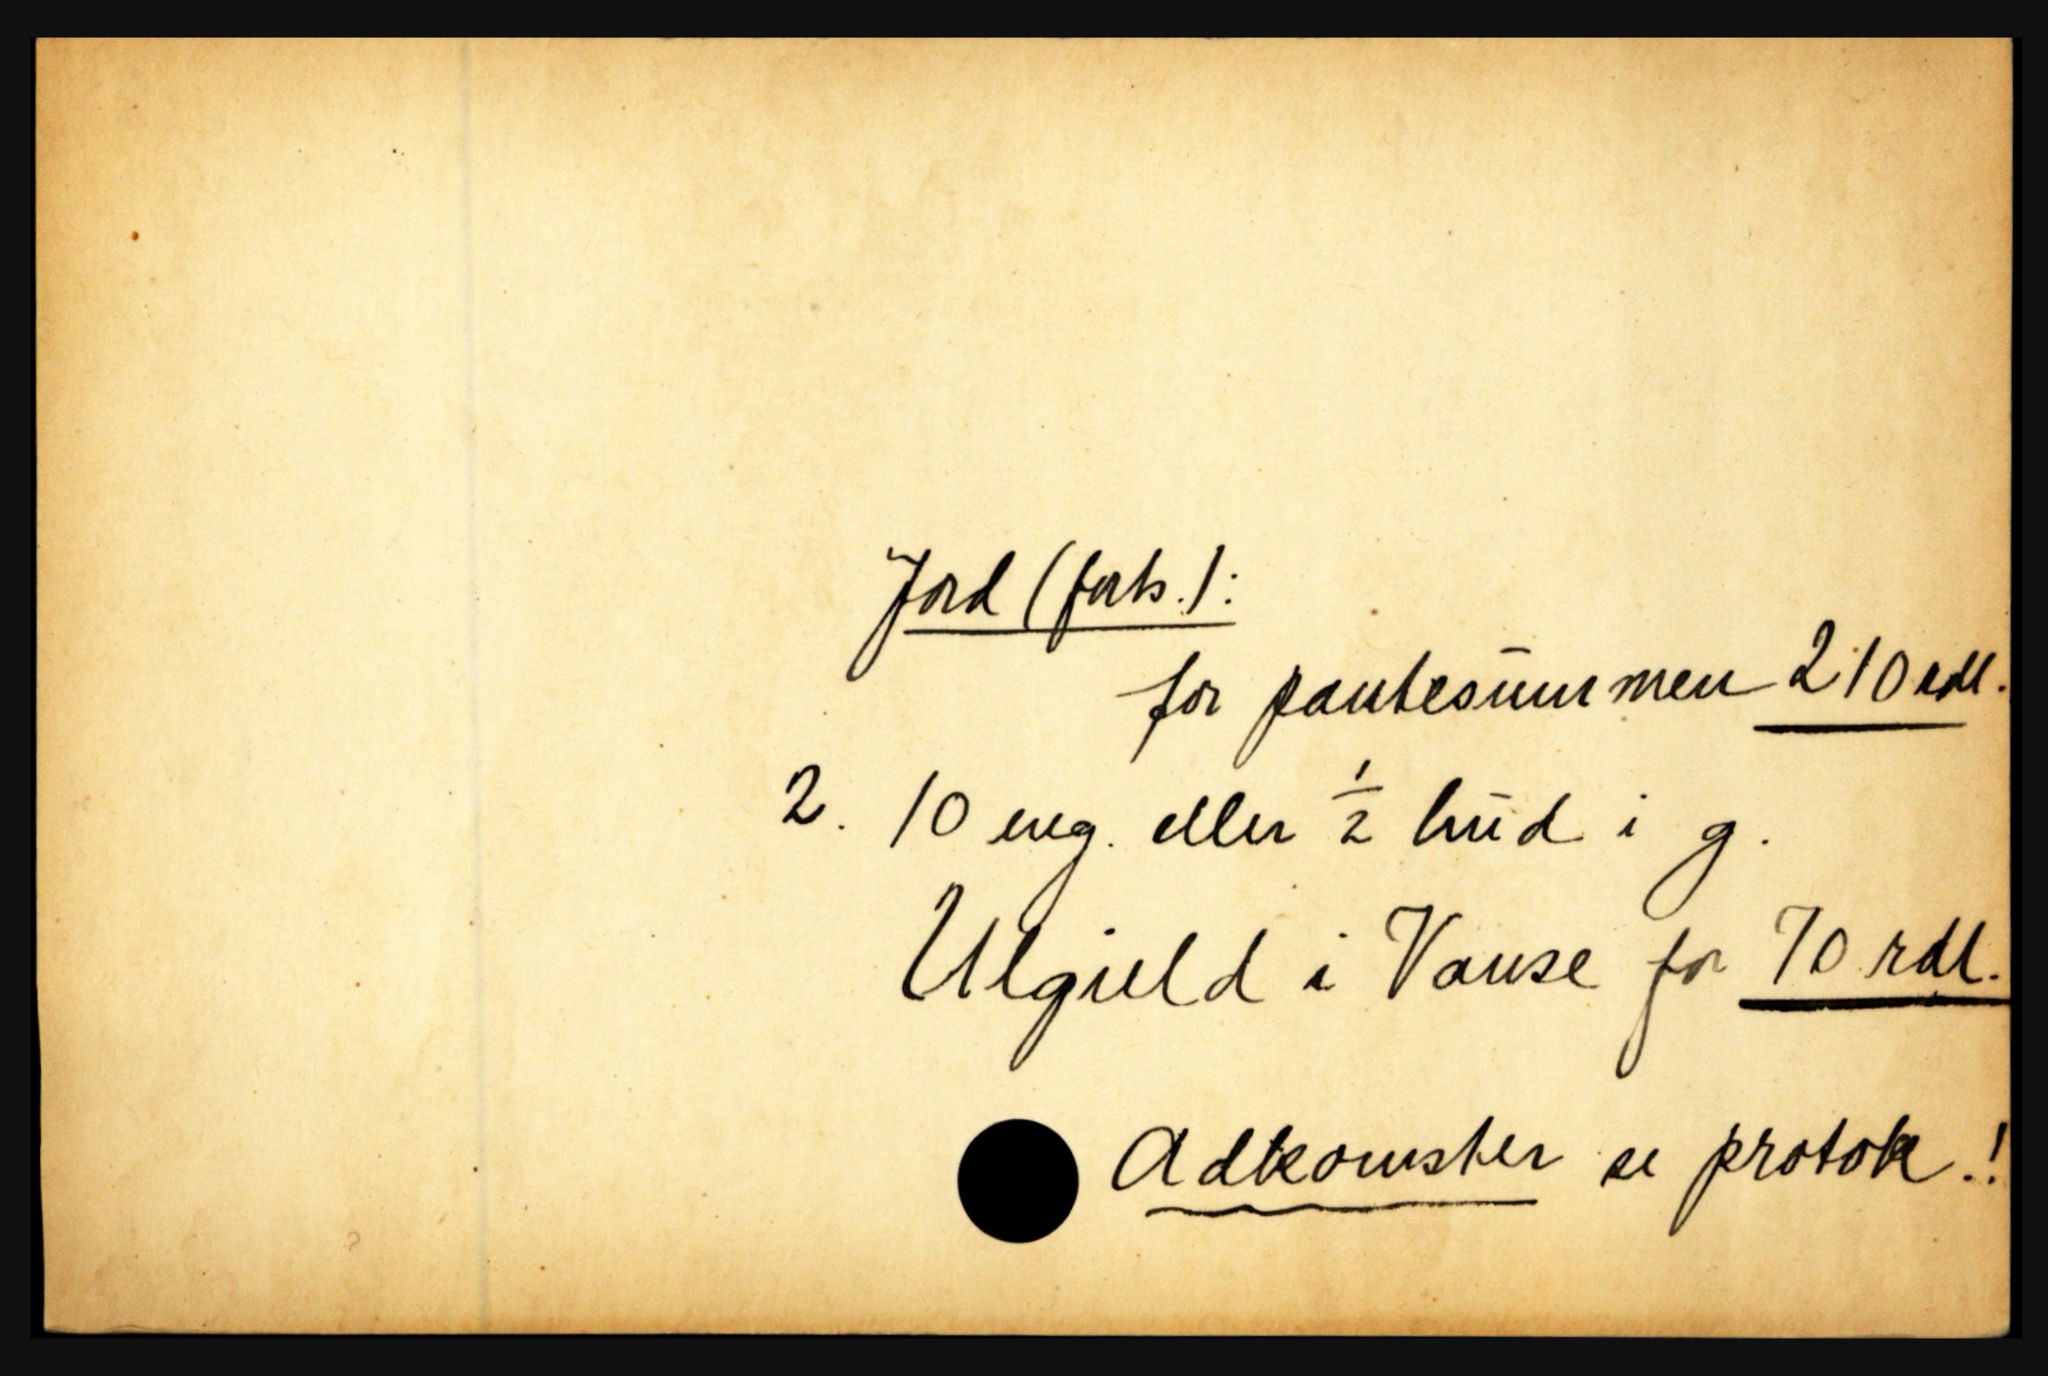 Jord (forts.):
for pantesummen 210 rdl.
2. 10 eng. eller 1/2 hud i g.
Ulgield i Vanse for 70 rdl.
Adkomster se protok.!